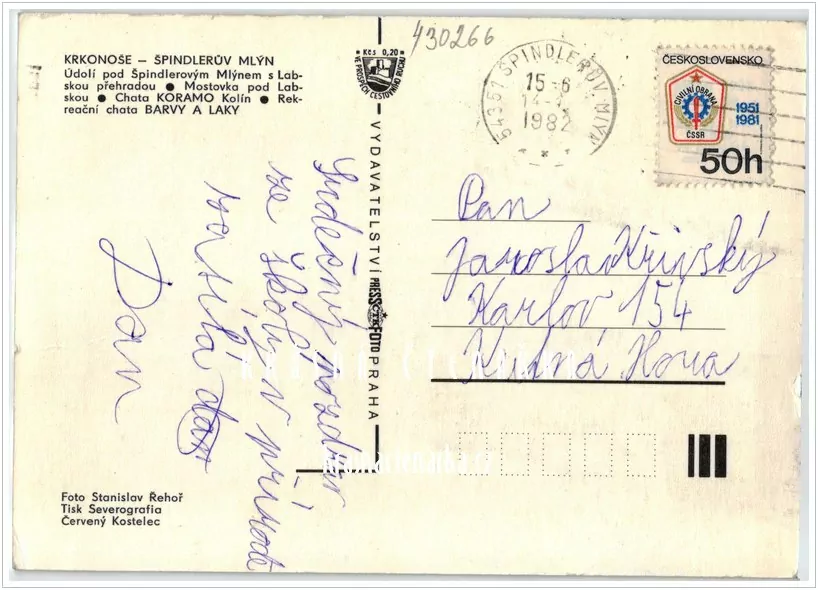 KRKONOŠE — ŠPINDLERŮV MLÝN
Údolí pod Špindlerovým Mlýnem s Lab-
skou přehradou ● Mostovka pod Lab-
skou ● Chata KORAMO Kolín ● Rek-
reační chata BARVY A LAKY
Kčs 0,20
VE PROSPĚCH CESTOVNÍHO RUCHU
430266
54351 ŠPINDLERŮV MLÝN
15-6
1982
ČESKOSLOVENSKO
CIVILNÍ OBRANA
ČSSR
1951
1981
50h
VYDAVATELSTVÍ PRESSFOTO PRAHA
ČTK
Srdečný pozdrav
ze školy v přírodě
zasílá
Dan
Pan
Jaroslav Křivský
Karlov 154
Kutná Hora
Foto Stanislav Řehoř
Tisk Severografia
Červený Kostelec